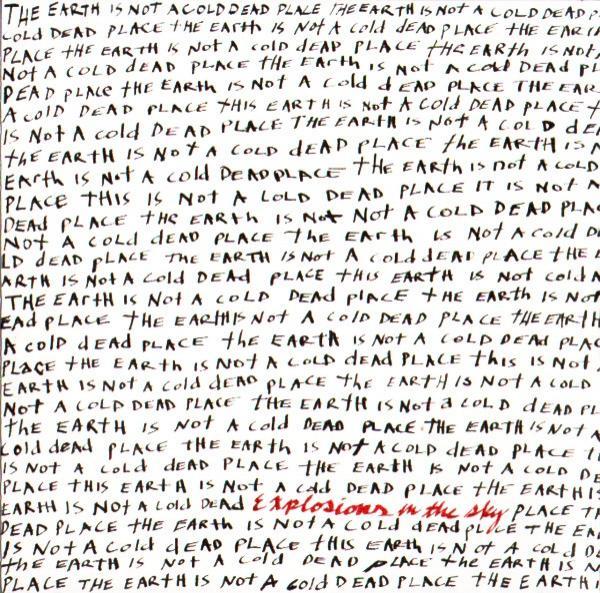 THE EARTH IS NOT A COLD DEAD PLACE THE EARTH IS NOT A COLD DEAD P
COLD DEAD PLACE THE EARTH IS NOT A COLD DEAD PLACE THE EARTH
PLACE THE EARTH IS NOT A COLD DEAD PLACE THE EARTH IS NOT
NOT A COLD DEAD PLACE THE EARTH IS NOT A COLD DEAD PL
DEAD PLACE THE EARTH IS NOT A COLD DEAD PLACE THE EAR
A COLD DEAD PLACE THIS EARTH IS NOT A COLD DEAD PLACE T
IS NOT A COLD DEAD PLACE THE EARTH IS NOT A COLD DE
THE EARTH IS NOT A COLD DEAD PLACE THE EARTH IS N
EARTH IS NOT A COLD DEAD PLACE THE EARTH IS NOT A COLD
PLACE THIS IS NOT A COLD DEAD PLACE IT IS NOT A
DEAD PLACE THE EARTH IS NOT NOT A COLD DEAD PLA
NOT A COLD DEAD PLACE THE EARTH IS NOT A COLD D
LD DEAD PLACE THE EARTH IS NOT A COLD DEAD PLACE THE E
ARTH IS NOT A COLD DEAD PLACE THIS EARTH IS NOT COLD A
THE EARTH IS NOT A COLD DEAD PLACE THE EARTH IS NOT
EAD PLACE THE EARTH IS NOT A COLD DEAD PLACE THE EARTH
A COLD DEAD PLACE THE EARTH IS NOT A COLD DEAD PLAC
PLACE THE EARTH IS NOT A COLD DEAD PLACE THIS IS NOT
EARTH IS NOT A COLD DEAD PLACE THE EARTH IS NOT A COLD
NOT A COLD DEAD PLACE THE EARTH IS NOT A COLD DEAD PL
THE EARTH IS NOT A COLD DEAD PLACE THE EARTH IS NOT A
COLD DEAD PLACE THE EARTH IS NOT A COLD DEAD PLACE T
IS NOT A COLD DEAD PLACE THE EARTH IS NOT A COLD DE
PLACE THIS EARTH IS NOT A COLD DEAD PLACE THE EARTH IS
EARTH IS NOT A COLD DEAD Explosions in the sky PLACE TH
DEAD PLACE THE EARTH IS NOT A COLD DEAD PLACE THE EA
IS NOT A COLD DEAD PLACE THIS EARTH IS NOT A COLD D
THE EARTH IS NOT A COLD DEAD PLACE THE EARTH IS N
PLACE THE EARTH IS NOT A COLD DEAD PLACE THE EARTH I